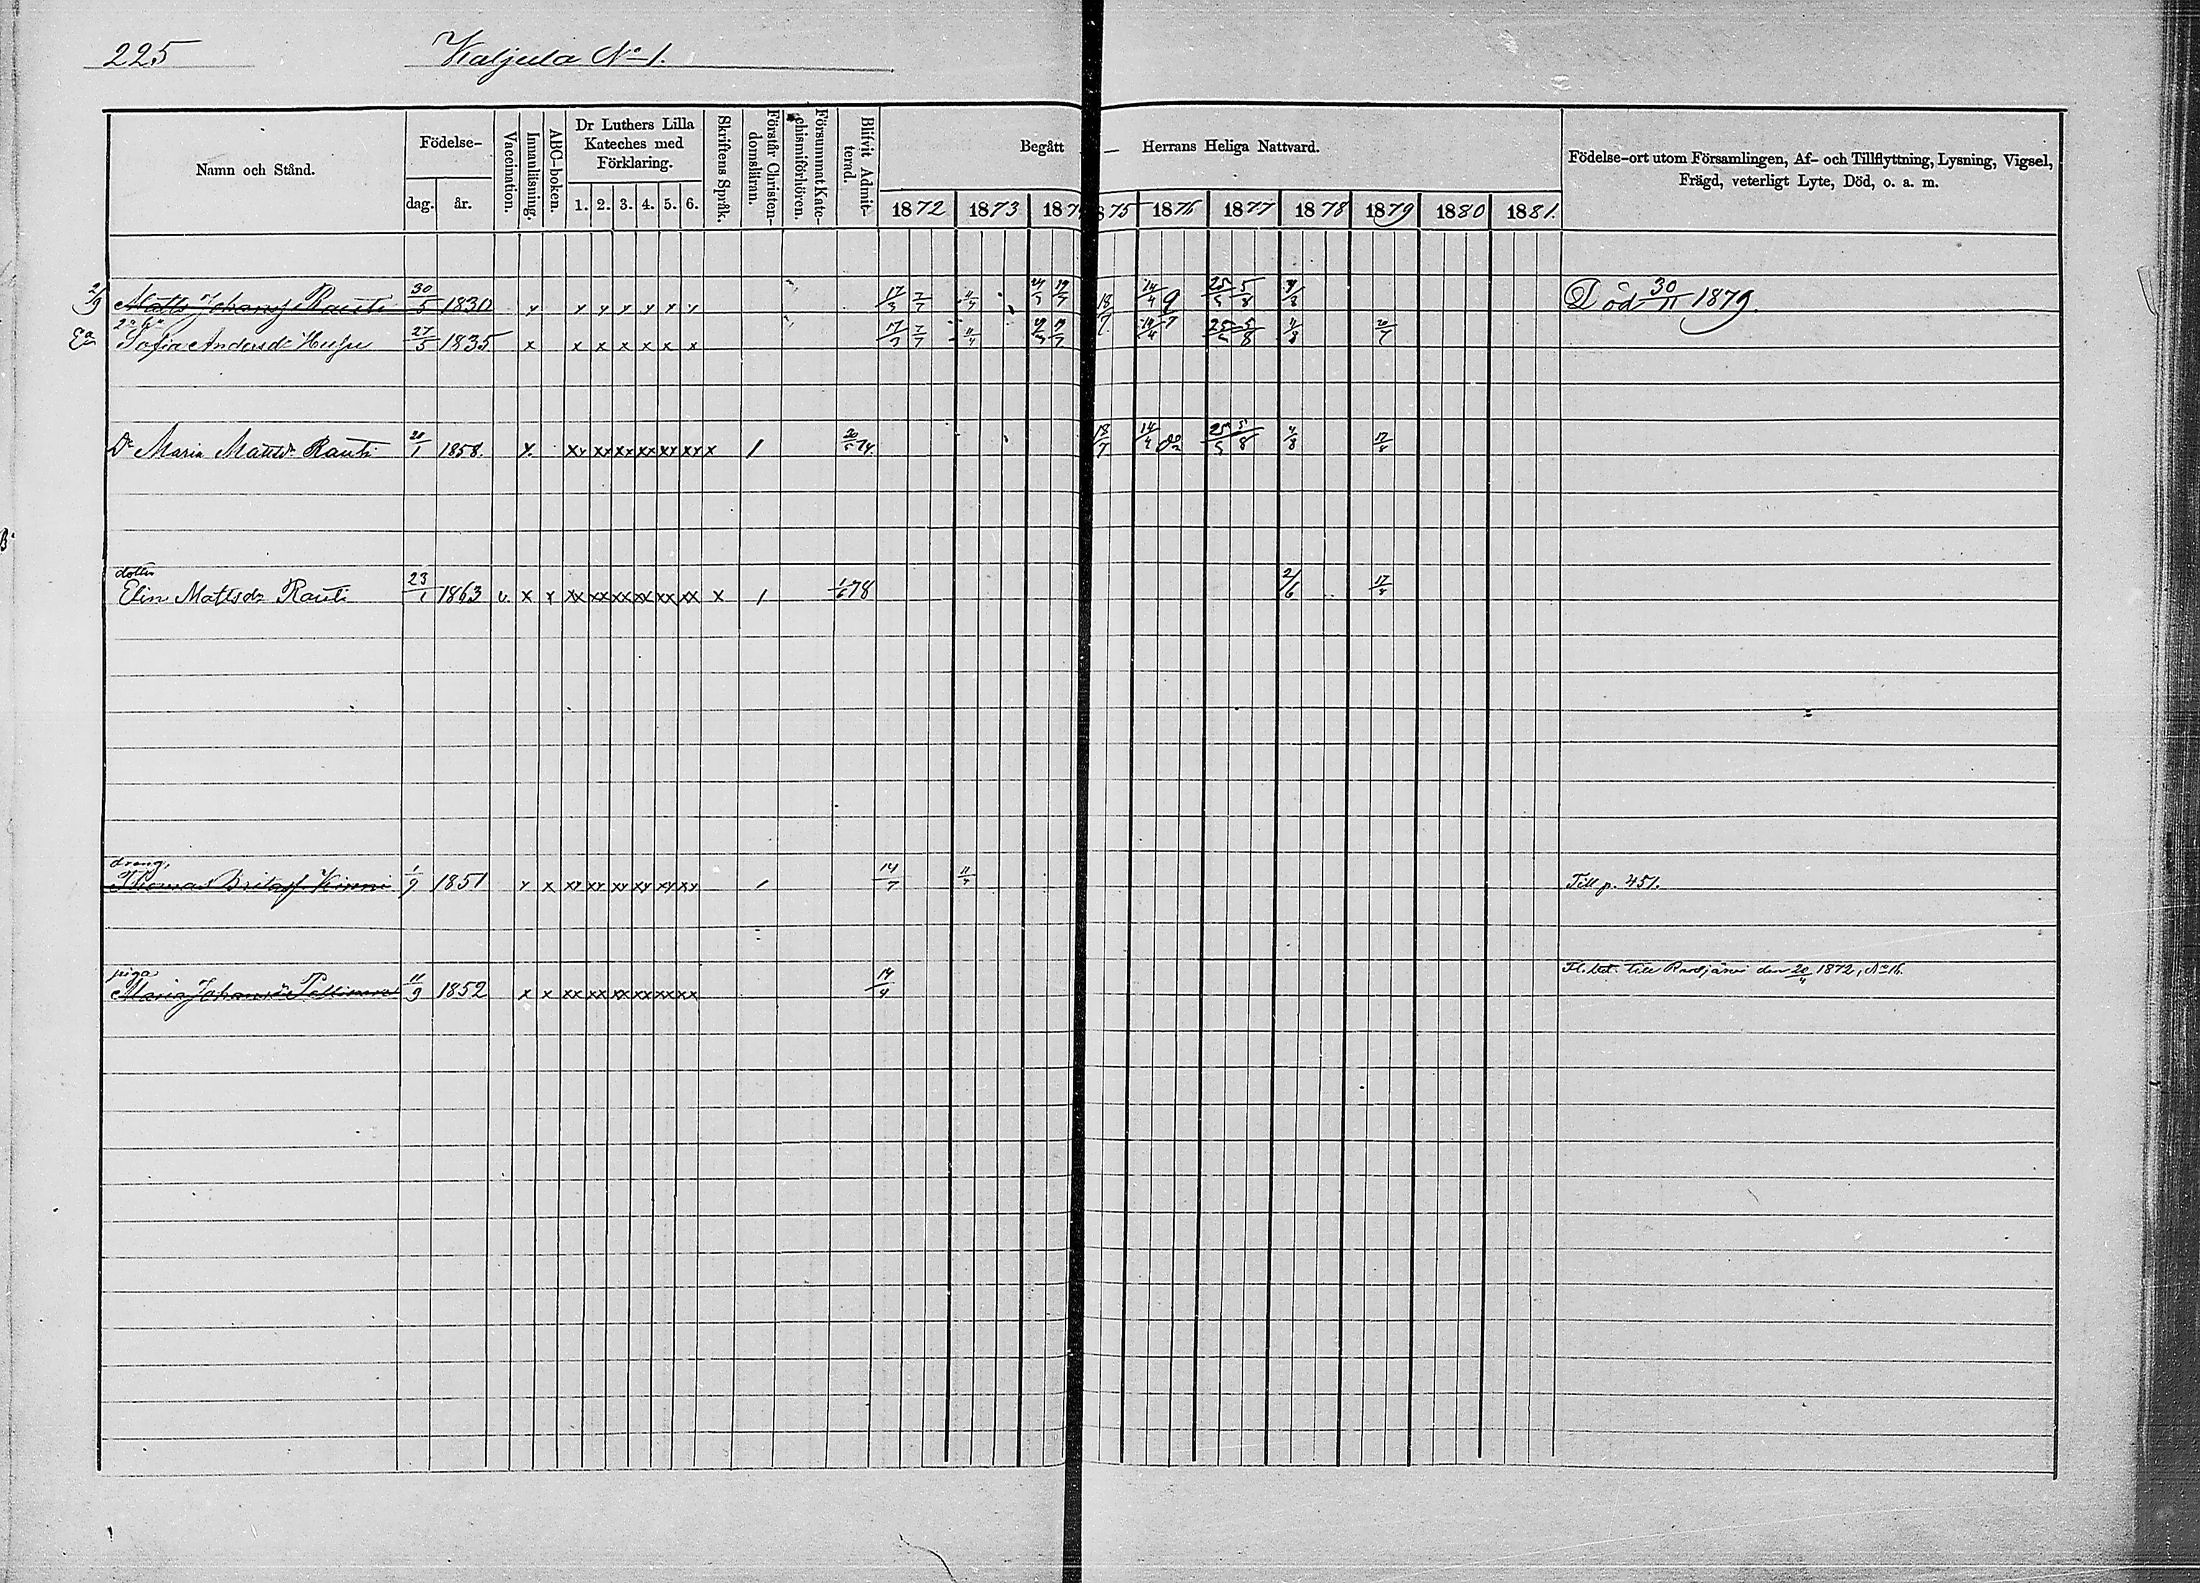 225 Kaljula No 1.
Namn och Stånd. Födelse- dag. år. Vaccination. Innanläsning. ABC-boken. Dr Luthers Lilla Kateches med Förklaring. 1. 2. 3. 4. 5. 6. Skriftens Språk. Förstår Christendomsläran. Försummat Katechismiförhören. Blifvit Admitterad.
Begått Herrans Heliga Nattvard.
1872 1873 187 875 1876 1877 1878 1879 1880 1881.
Födelse-ort utom Församlingen, Af- och Tillflyttning, Lysning, Vigsel,
Frägd, veterligt Lyte, Död, o. a. m.
2/9 Matts Johansf Rauti 30/5 1830 y y y y y y y 17/3 7/7 11/4 18/7 14/4 9 25/5 5/8 4/8 Död 30/11 1879.
Sofia Andersdr 27/5 1835 x x x x x x x 17/3 7/7 11/4 25/5 5/8 20/7
Dr Maria Mattsdr Rauti 1858. x. xy xy xx xx xy xy x / 20/5 74. 18/7 14/4 25/5 5/8 4/8 17/8
dotter
Elin Mattsdr Rauti 23/1 1863 v. x x xx xx xx xx xx xx x / 1/6 78 2/6 17/8
dreng.
Thomas Britasf. Kinni 1/9 1851 y x xy xy xy xy xy xy / 14/7 11/4 Till p. 451.
piga
Maria Johansdr 11/9 1852 x x xx xx xx xx xx xx 14/4 Fl. bet. till den 20/4 1872, No 16.